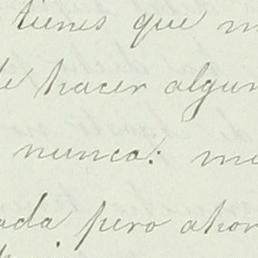 tienes que m
de hacer algun
nunca: me
ada pero ahor